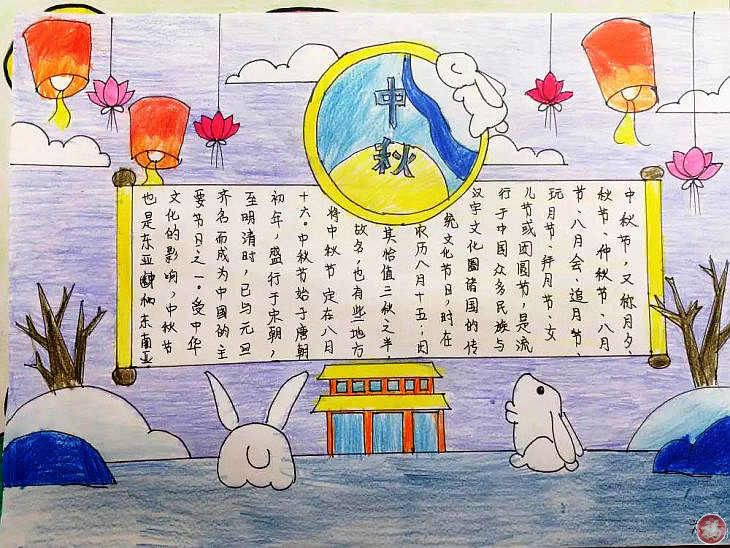 中秋
中秋节，又称月夕、
秋节、仲秋节、八月
节、八月会、追月节、
玩月节、拜月节、女
儿节或团圆节，是流
行于中国众多民族与
汉字文化圈诸国的传
统文化节日，时在
农历八月十五；因
其恰值三秋之半，
故名，也有些地方
将中秋节定在八月
十六。中秋节始于唐朝
初年，盛行于宋朝，
至明清时，已与元旦
齐名而成为中国的主
要节日之一。受中华
文化的影响，中秋节
也是东亚和东南亚